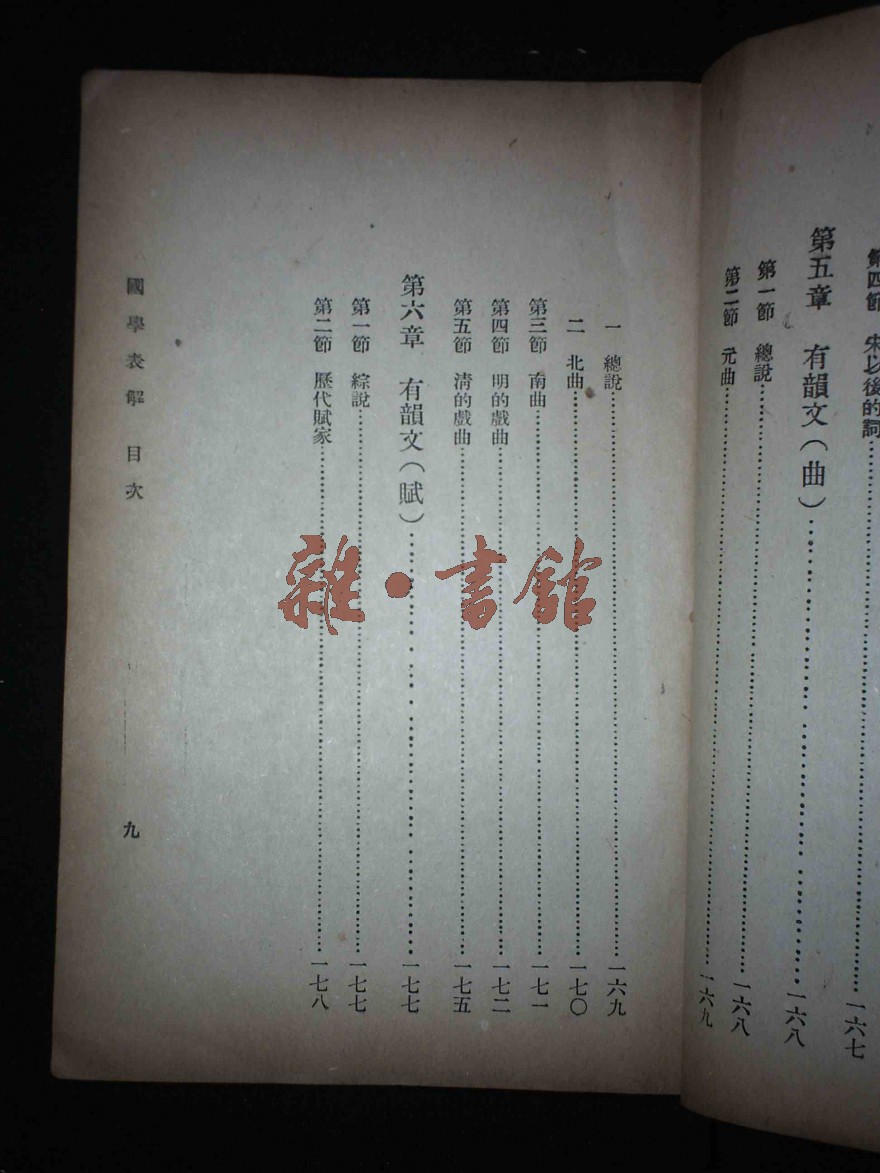 第四節 宋以後的詞…………一六七
第五章 有韻文（曲）…………一六八
第一節 總說…………一六八
第二節 元曲…………一六九
一 總說…………一六九
二 北曲…………一七〇
第三節 南曲…………一七一
第四節 明的戲曲…………一七二
第五節 淸的戲曲…………一七五
第六章 有韻文（賦）…………一七七
第一節 綜說…………一七七
第二節 歷代賦家…………一七八
國學表解 目次
九
雜·書館